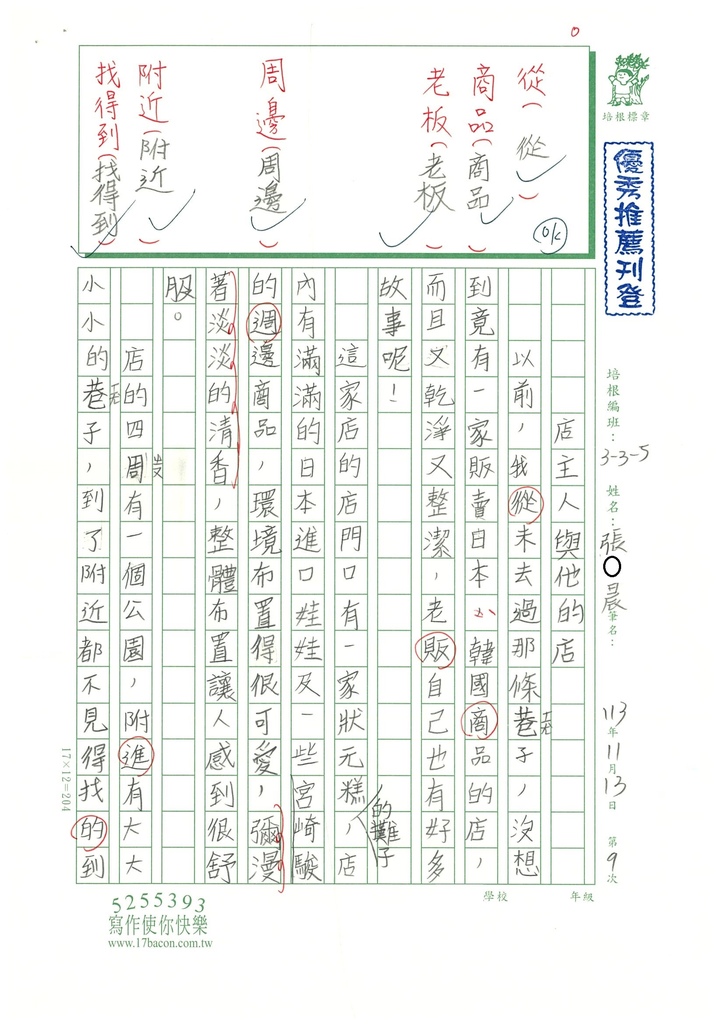 從(從)
商品(商品)
老板(老板)
周邊(周邊)
附近(附近)
找得到(找得到)
OK
培根標章
優秀推薦刊登
培根編班：3-3-5
姓名：張○晨
筆名：
113年11月13日 第9次
學校 年級
店主人與他的店
以前，我從未去過那條巷子，沒想
到竟有一家販賣日本、韓國商品的店，
而且又乾淨又整潔，老販自己也有好多
故事呢！
這家店的店門口有一家狀元糕的攤子，店
內有滿滿的日本進口娃娃及一些宮崎駿
的週邊商品，環境布置得很可愛，彌漫
著淡淡的清香，整體布置讓人感到很舒
服。
店的四周有一個公園，附進有大大
小小的巷子，到了附近都不見得找的到
17×12=204
5255393
寫作使你快樂
www.17bacon.com.tw